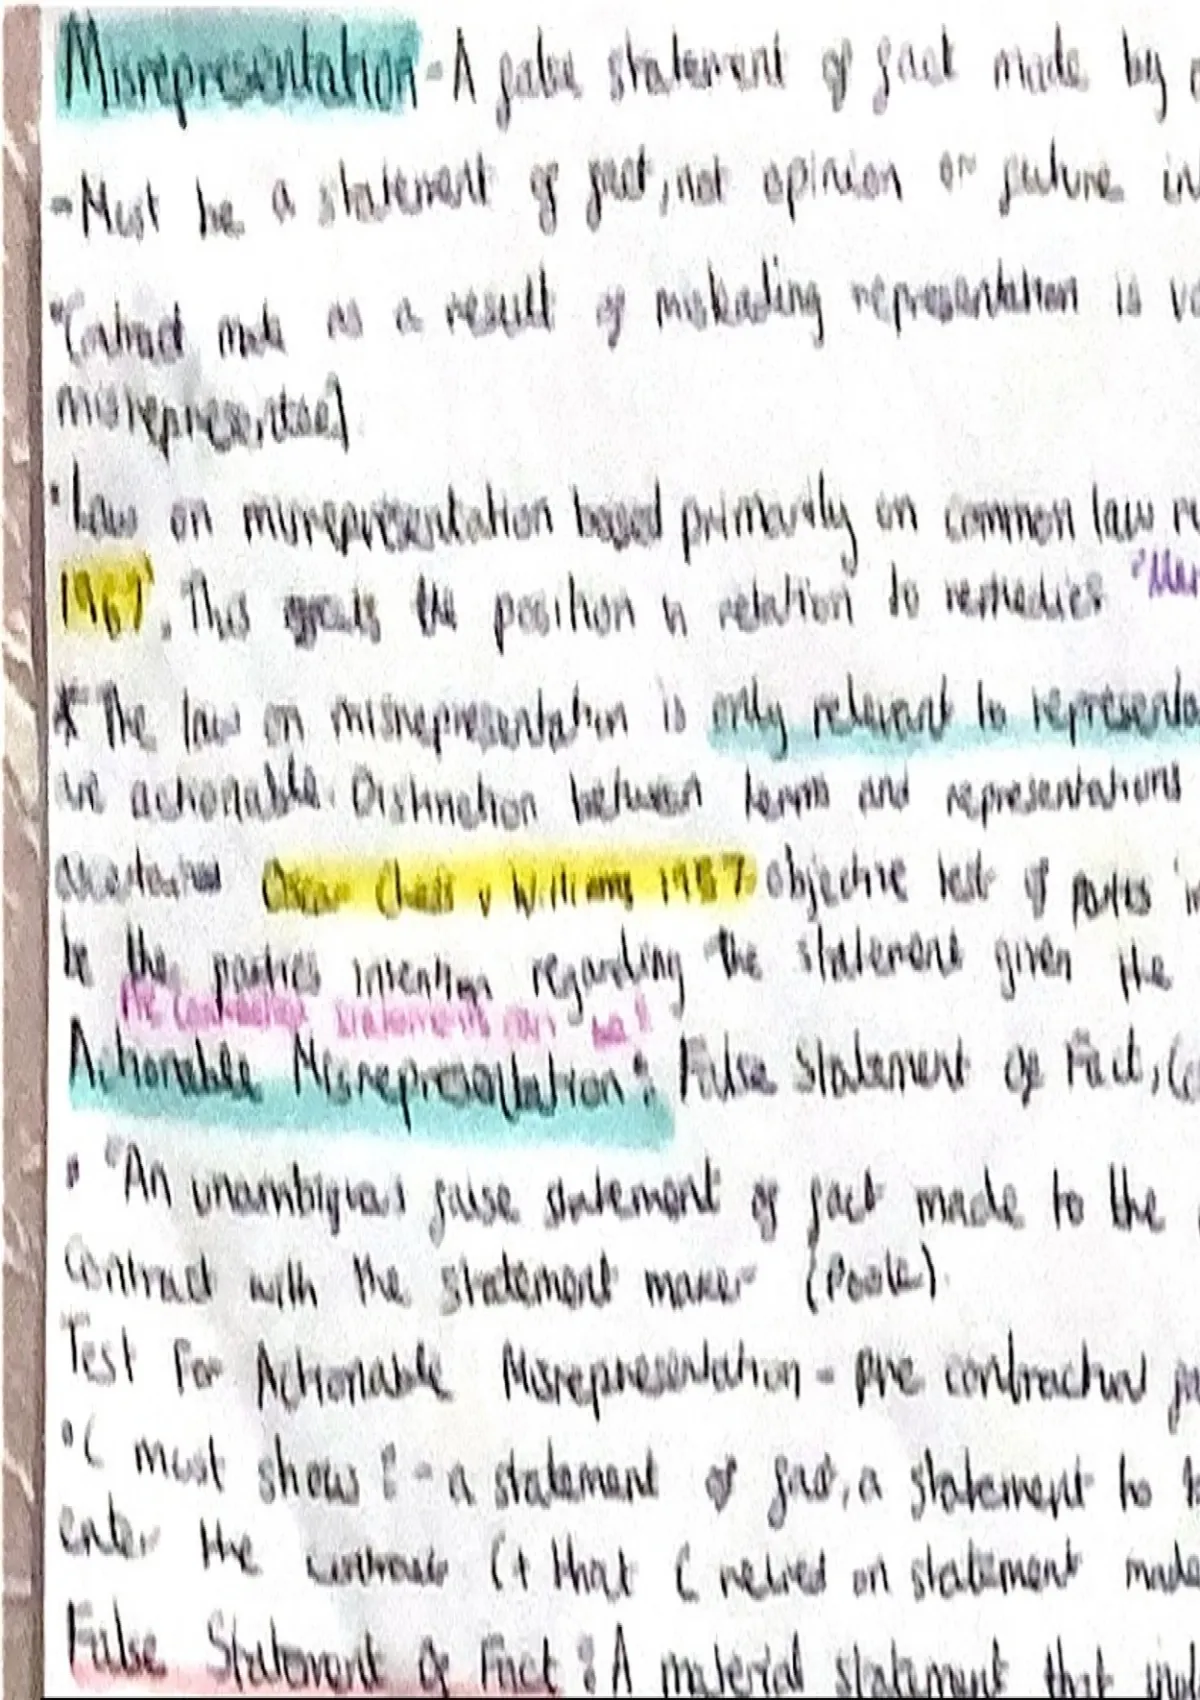 Misrepresentation - A false statement of fact made by
- Must be a statement of fact, not opinion or future
Contract made as a result of misleading representation is
misrepresented]
• Law on misrepresentation based primarily on common law
1967'. This the position in relation to remedies
* The law on misrepresentation is only relevant to
are actionable. Distinction between terms and representations
ascertained Oscar Chess v Williams 1957 objective test of parties
be the parties intention regarding the statement given the
Pre Contractual statements can be:
Actionable Misrepresentation: False Statement of Fact,
• "An unambiguous false statement of fact made to the
contract with the statement maker (Poole).
Test For Actionable Misrepresentation - pre contractual
• C must show: - a statement of fact, a statement to
enter the contract (+ that C relied on statement made
False Statement of Fact: A material statement that